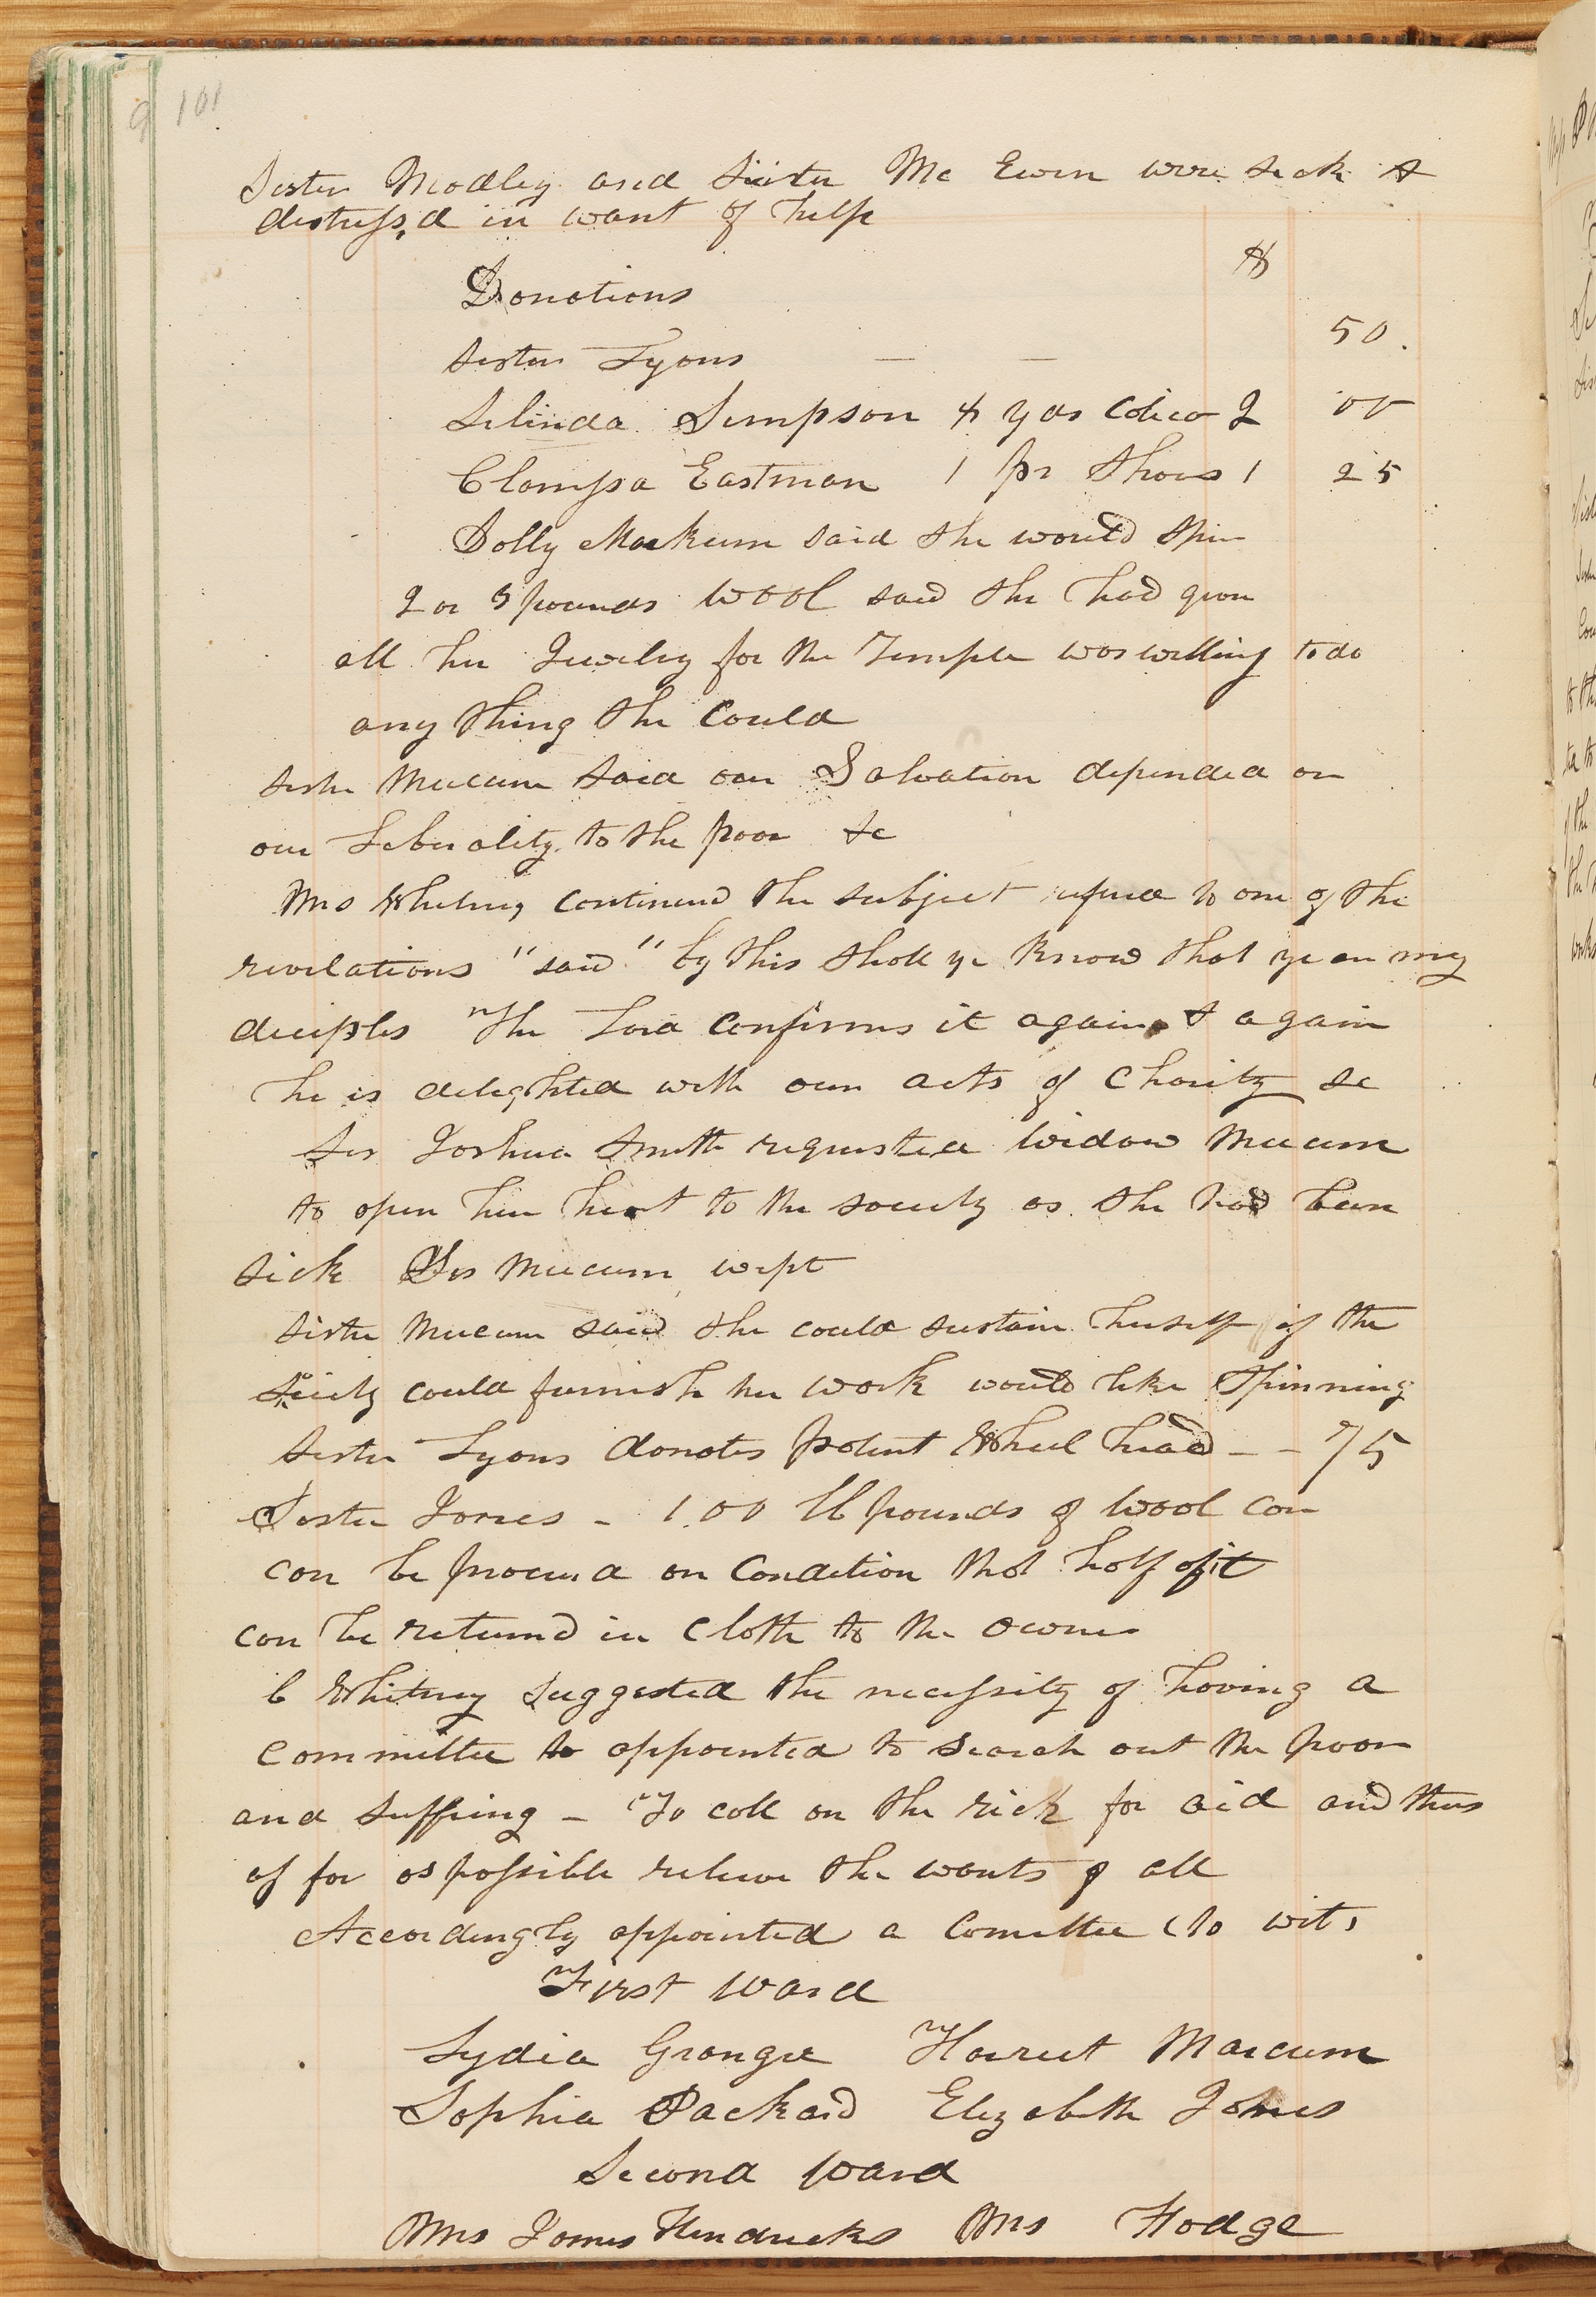 101
Sister Modley and Sister Mc Ewen were sick &
distress,d in want of help
$
Donations
Sister Lyons — — 50.
Selinda Simpson 4 yds Calico 2 00
Clarrissa Eastman 1 pr Shoes 1 25
Dolly Markum said she would spin
2 or 3 pounds wool said she had given
all her Juelry for the Temple was willing to do
any thing she could
sister Mecum said our Salvation depended on
our Liberality. to the poor &c
Mrs Whitney continued the subject refered to one of the
revelations "said" by this shall ye know that ye are my
deciples The Lord confirms it again & again
he is delighted with our acts of Charity &c
Sis Joshua Smith requested widow Mecum
to open her heart to the society as she had been
sick Sis Mecum wept
sister Mecum said she could sustain herself if the
Society could furnish her work would like Spinning
Sister Lyons donates patent Wheel head - - 75
Sister Jones - 1.00 lb pounds of wool can
can be procured on condition that half of it
can be returnd in cloth to the owner
C Whitney suggested the necessity of having a
committee to appointed to search out the poor
and suffring - To call on the rich for aid and thus
as far as possible relieve the wants of all
Accordingly appointed a Comittee (to wit,
First Ward
Lydia Granger Harriet Marcum
Sophia Packard Elizabeth Jones
Second Ward
Mrs James Hendricks Mrs Hodge